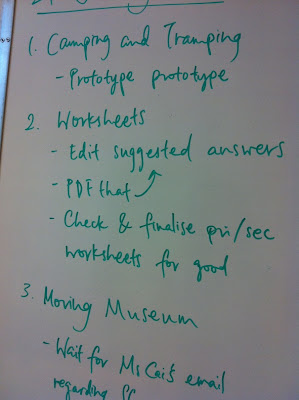 1. Camping and Tramping
- Prototype prototype
2. Worksheets
- Edit suggested answers
- PDF that
- Check & finalise pri/sec
worksheets for good
3. Moving Museum
- Wait for Ms Cai's email
regarding